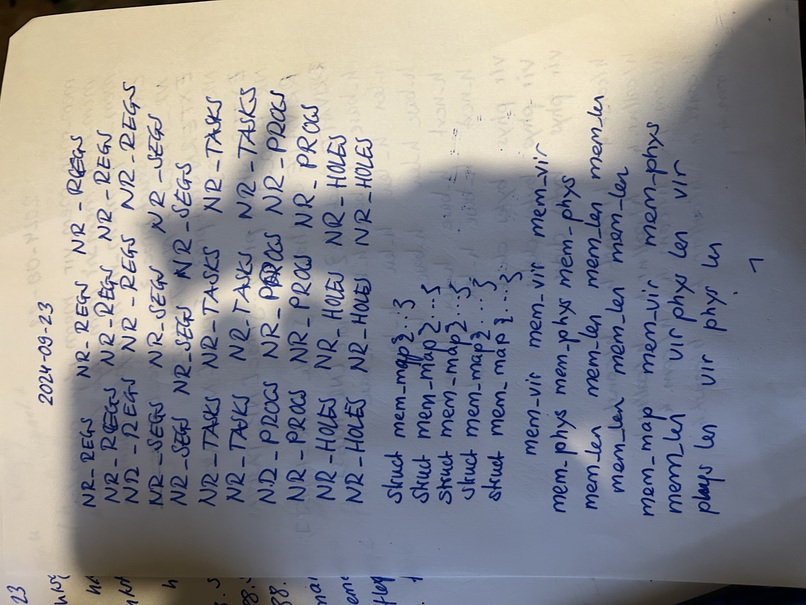 2024-09-23
NR_REGS NR_REGS NR_REGS
NR_REGS NR_REGS NR_REGS
NR_REGS NR_REGS NR_REGS
NR_SEGS NR_SEGS NR_SEGS
NR_SEGS NR_SEGS NR_SEGS
NR_TASKS NR_TASKS NR_TASKS
NR_TASKS NR_TASKS NR_TASKS
NR_PROCS NR_PROCS NR_PROCS
NR_PROCS NR_PROCS NR_PROCS
NR_HOLES NR_HOLES NR_HOLES
NR_HOLES NR_HOLES NR_HOLES
struct mem_map {...}
struct mem_map {...}
struct mem_map {...}
struct mem_map {...}
struct mem_map {...}
mem_vir mem_vir mem_vir
mem_phys mem_phys mem_phys
mem_len mem_len mem_len mem_len
mem_len mem_len mem_len
mem_map mem_vir mem_phys
mem_len vir phys len vir
phys len vir phys len
1